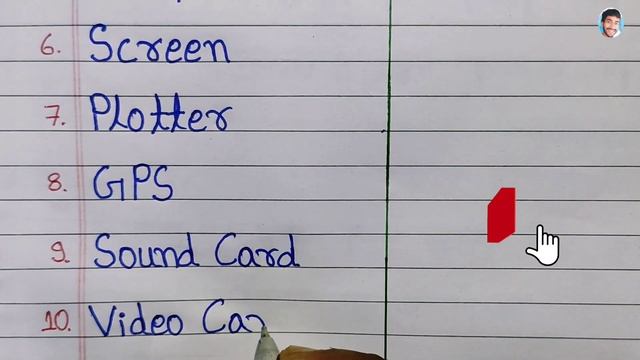 6. Screen
7. Plotter
8. GPS
9. Sound Card
10. Video Car